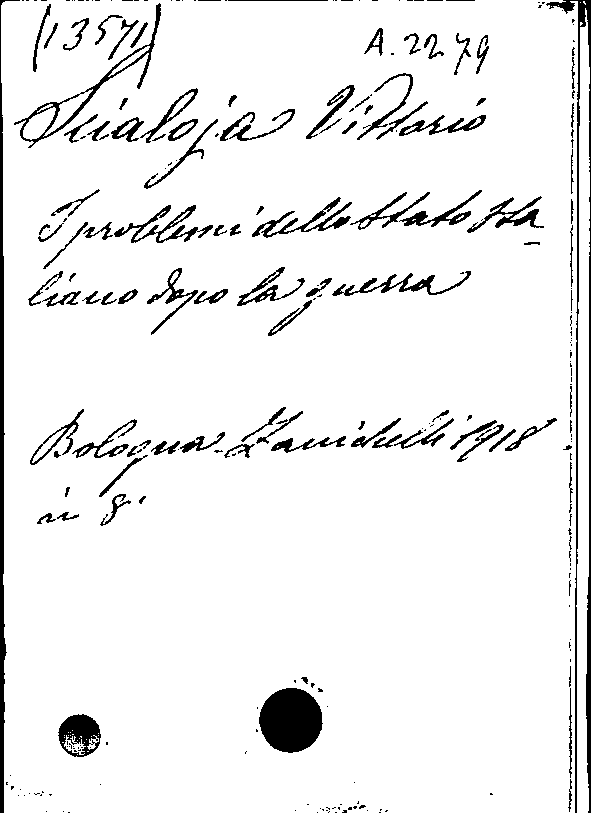 (13571)
A. 2279
Scialoja Vittorio
I problemi dello stato Ita
liano dopo la guerra
Bologna Zanichelli 1918.
in 8.